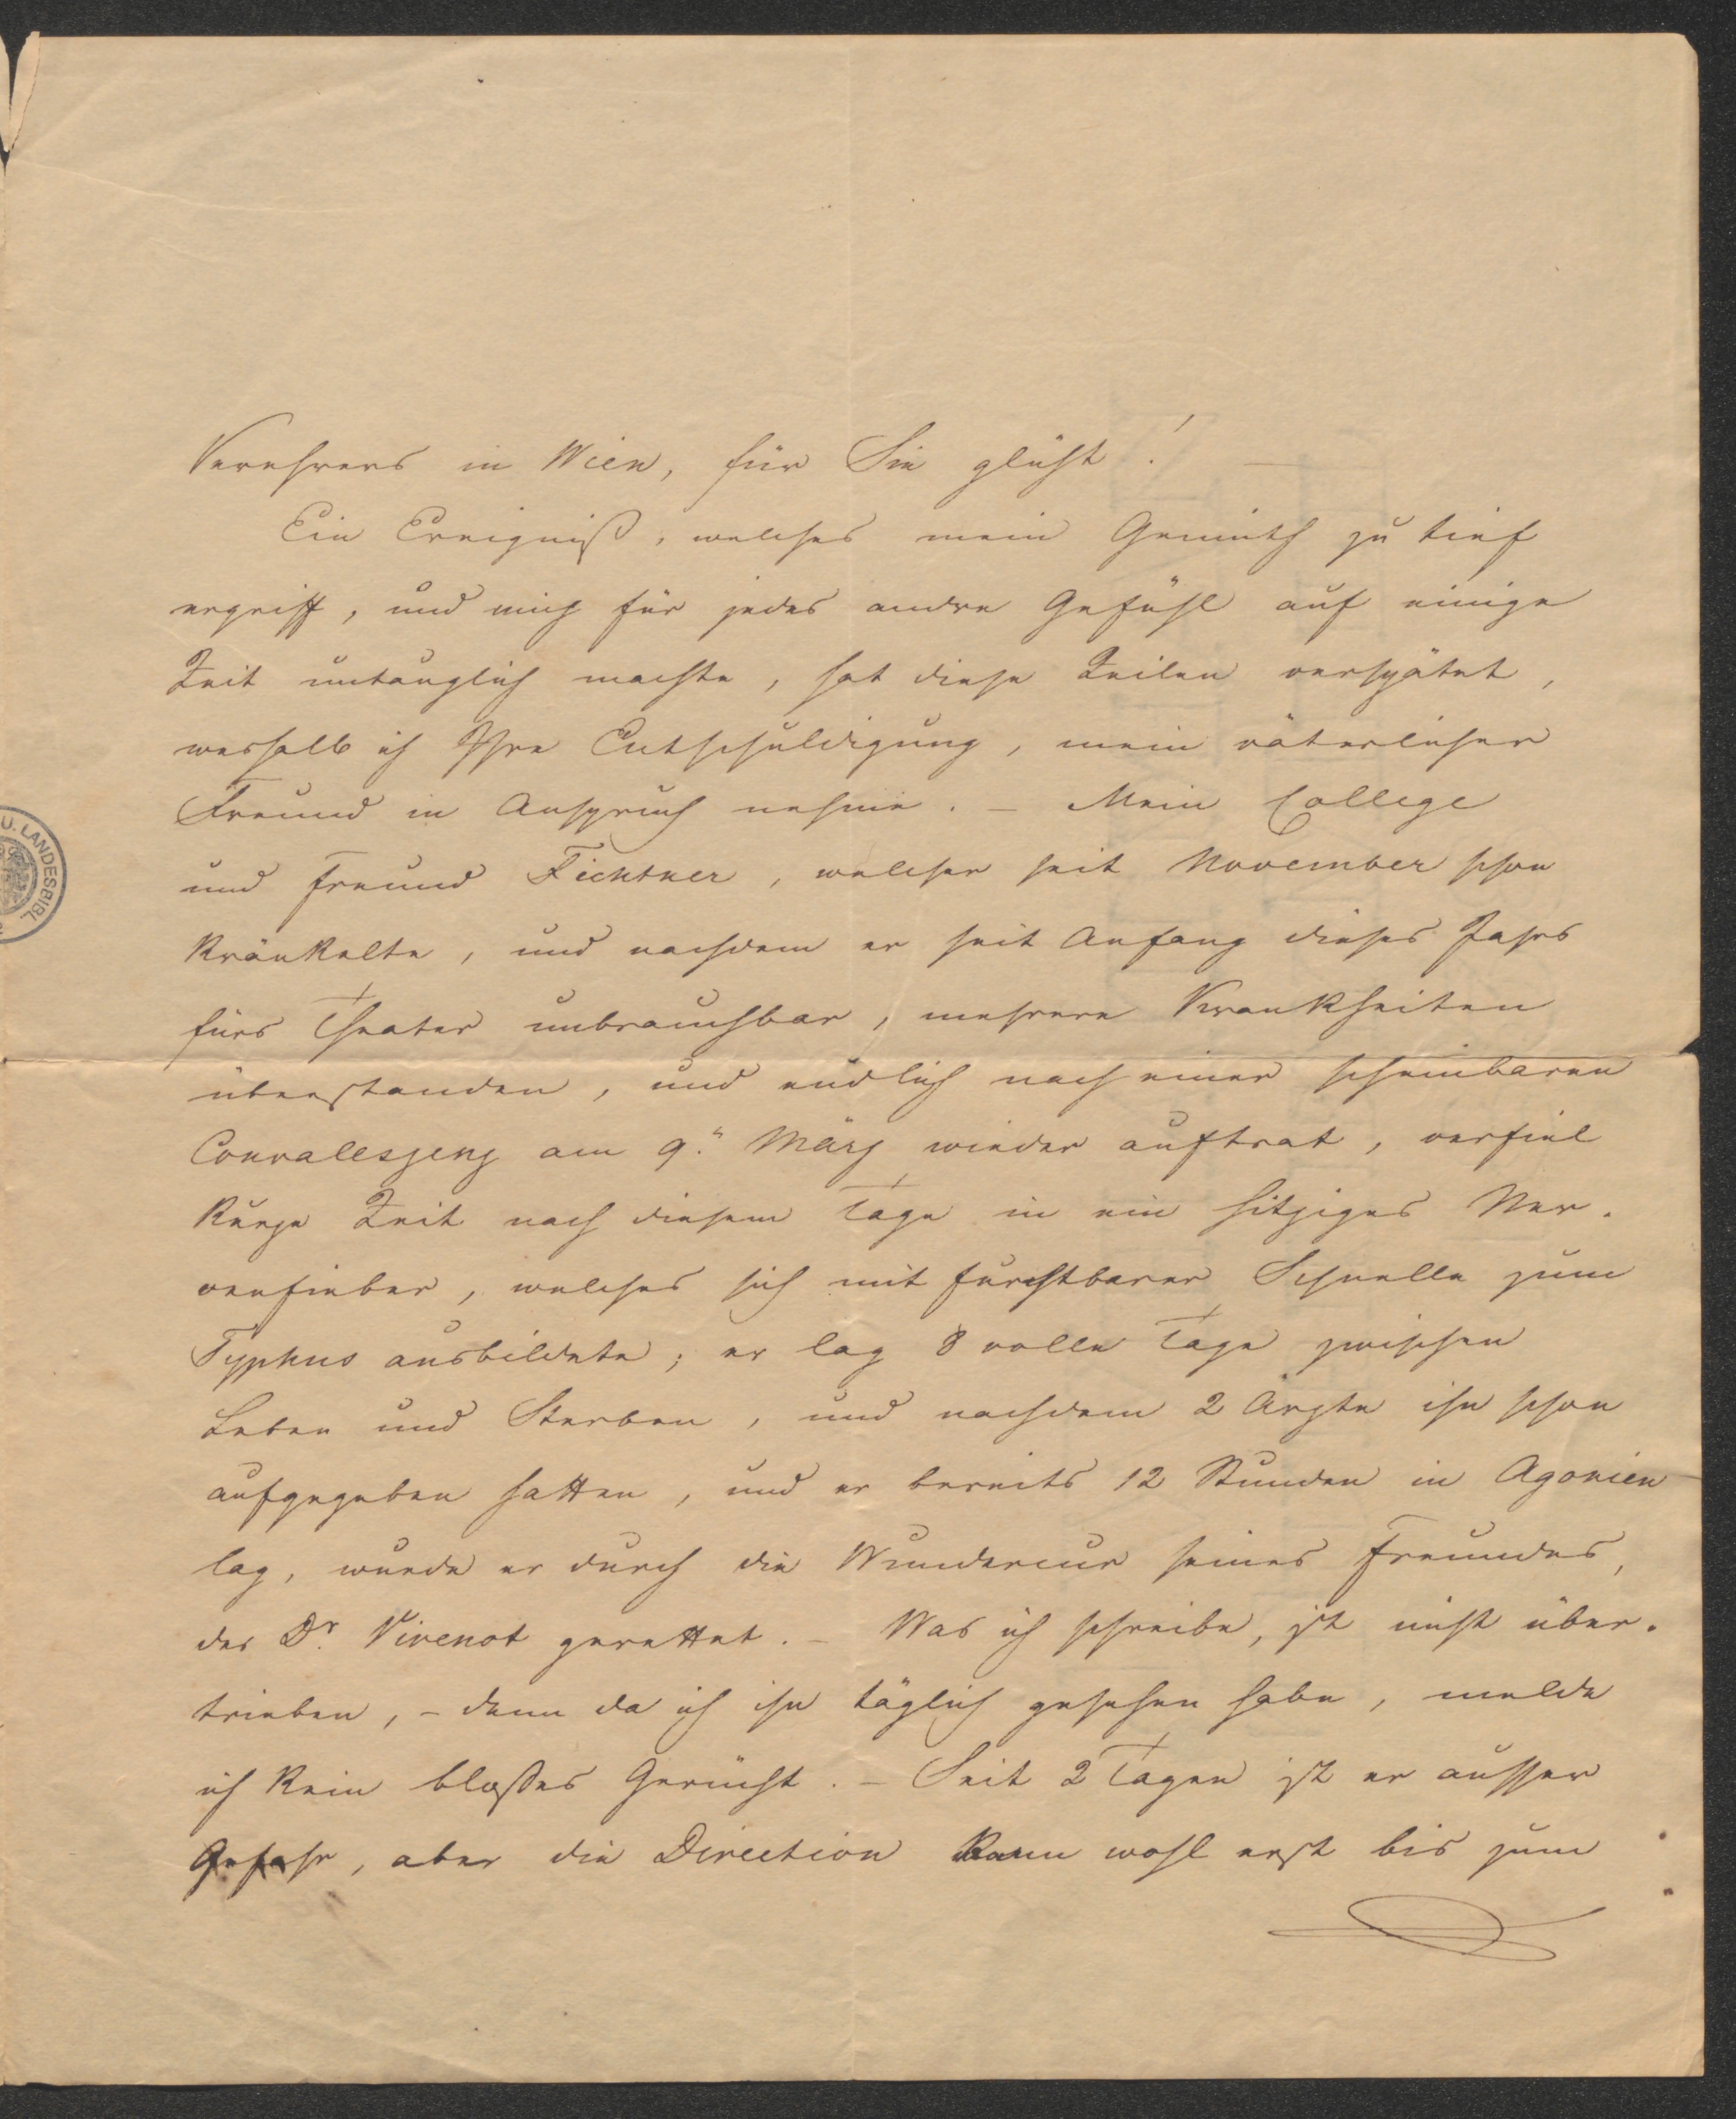 Verehrers in Wien, für Sie glüht! —
Ein Ereigniß, welches mein Gemüth zu tief
ergriff, und mich für jedes andre Gefühl auf einige
Zeit untauglich machte, hat diese Zeilen verspätet,
weshalb ich Ihre Entschuldigung, mein väterlicher
Freund in Anspruch nehme. – Mein College
und Freund Fichtner, welcher seit November schon
kränkelte, und nachdem er seit Anfang dieses Jahrs
fürs Theater unbrauchbar, mehrere Krankheiten
überstanden, und endlich nach einer scheinbaren
Convaleszenz am 9n März wieder auftrat, verfiel
kurze Zeit nach diesem Tage in ein hitziges Ner-
venfieber, welches sich mit furchtbarer Schnelle zum
Typhus ausbildete; er lag 8 volle Tage zwischen
Leben und Sterben, und nachdem 2 Ärzte ihn schon
aufgegeben hatten, und er bereits 12 Stunden in Agonien
lag, wurde er durch die Wundercur seines Freundes,
des Dr. Vivenot gerettet. – Was ich schreibe, ist nicht über-
trieben, – denn da ich ihn täglich gesehen habe, melde
ich kein bloßes Gerücht. – Seit 2 Tagen ist er ausser
Gefahr, aber die Direction kann wohl erst bis zum
U. LANDESBIBL.